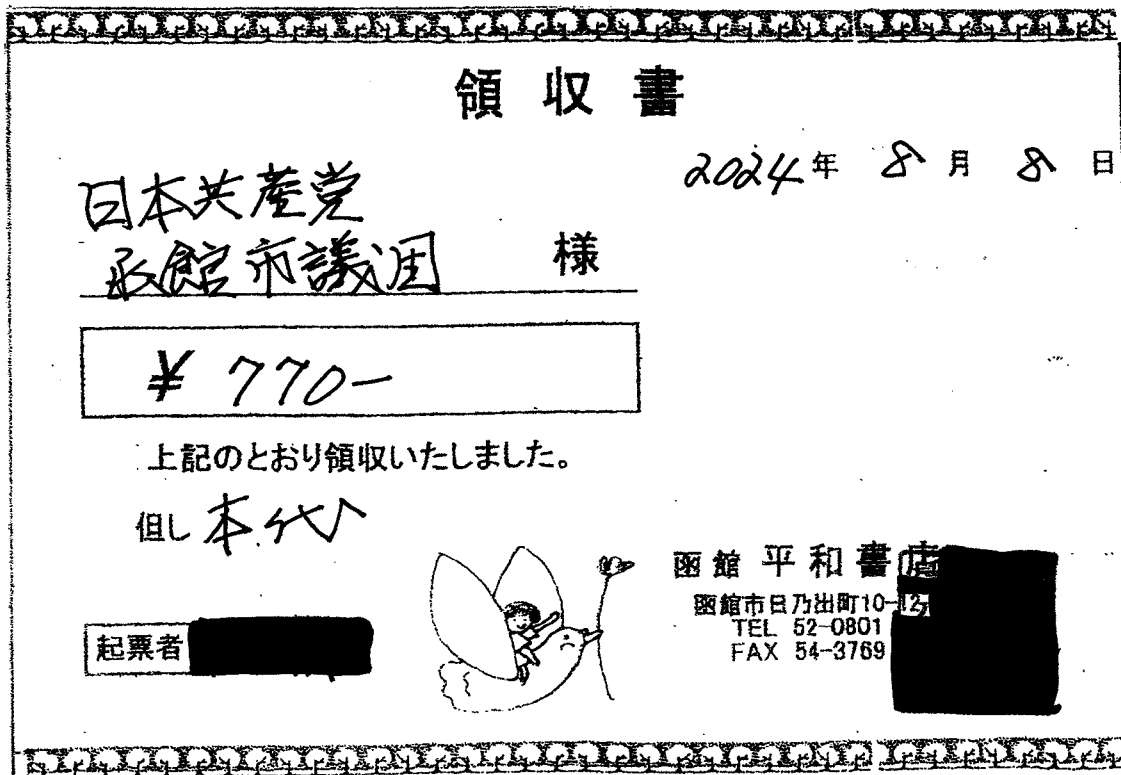 領収書
2024年 8月 8日
日本共産党
函館市議団 様
¥ 770-
上記のとおり領収いたしました。
但し 本代
函館 平和書店
函館市日乃出町10-12
TEL 52-0801
FAX 54-3769
起票者